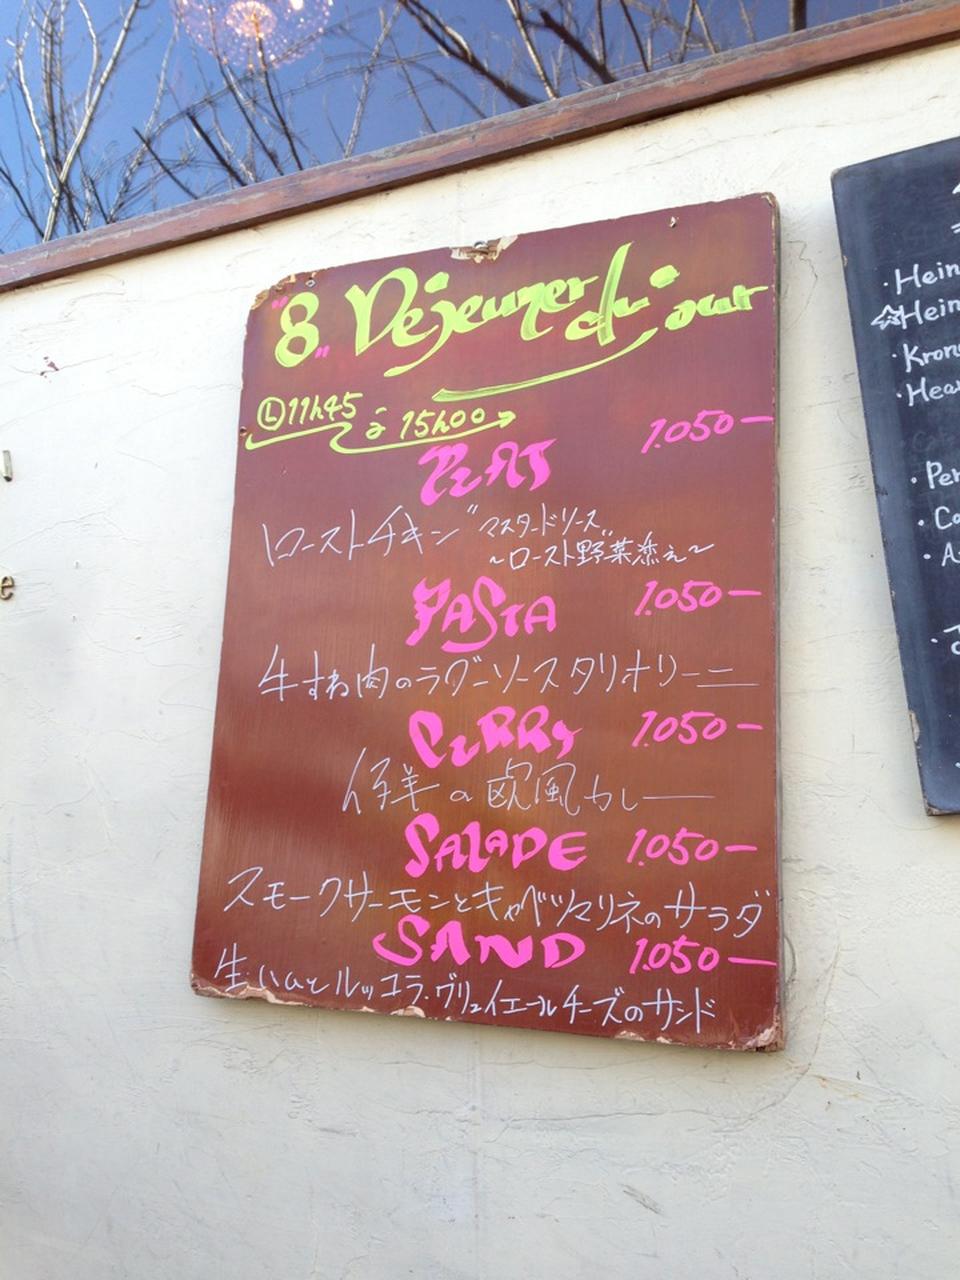 "8" Déjeuner du jour
Ⓛ 11h45 à 15h00
PLAT 1.050-
ローストチキン"マスタードソース"
~ロースト野菜添え~
PASTA 1.050-
牛すね肉のラグーソースタリオリーニ
CURRY 1.050-
仔羊の欧風カレー
SALADE 1.050-
スモークサーモンとキャベツマリネのサラダ
SAND 1.050-
生ハムとルッコラ・グリュイエールチーズのサンド
e
·Hein
☆Hein
·Kron
·Hea
·Per
·Co